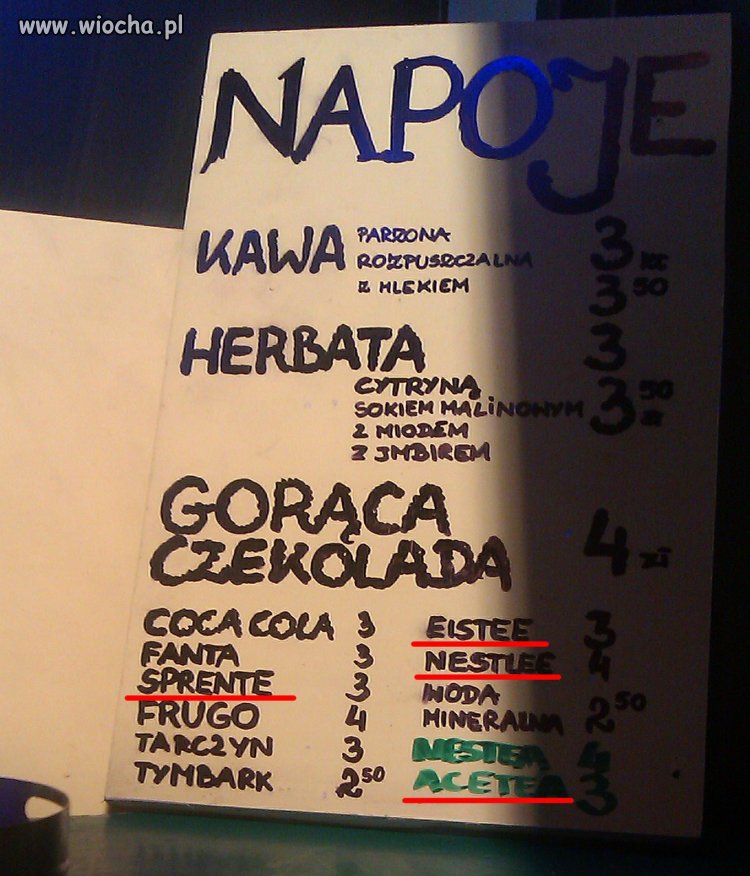 www.wiocha.pl
NAPOJE
KAWA PARZONA 3 zł
ROZPUSZCZALNA
Z MLEKIEM 3 50
HERBATA 3
CYTRYNĄ 3 50
SOKIEM MALINOWYM zł
Z MIODEM
Z JMBIREM
GORĄCA
CZEKOLADA 4 zł
COCA COLA 3 EISTEE 3
FANTA 3 NESTLEE 4
SPRENTE 3 WODA
FRUGO 4 MINERALNA 2 50
TARCZYN 3 NESTEA 4
TYMBARK 2 50 ACETEA 3